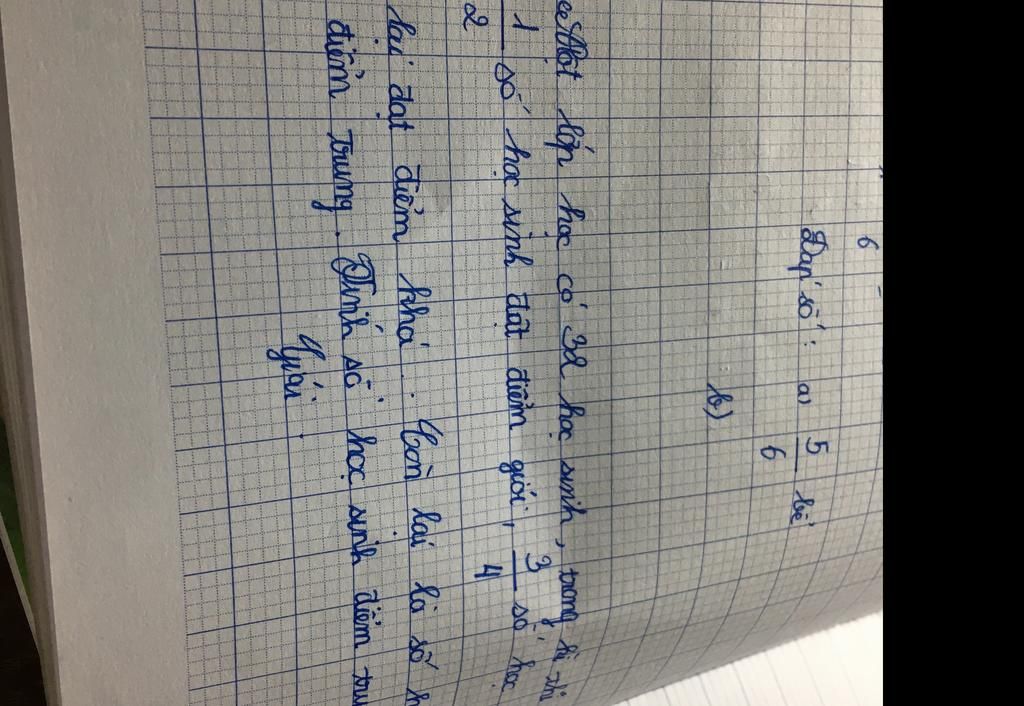 6
Đáp số : a) 5/6 bể
b)
Một lớp học có 32 học sinh, trong kì thi
1/2 số học sinh đạt điểm giỏi, 3/4 số học
lại đạt điểm khá. Còn lại là số h
điểm trung. Tính số học sinh điểm tru
Giải.